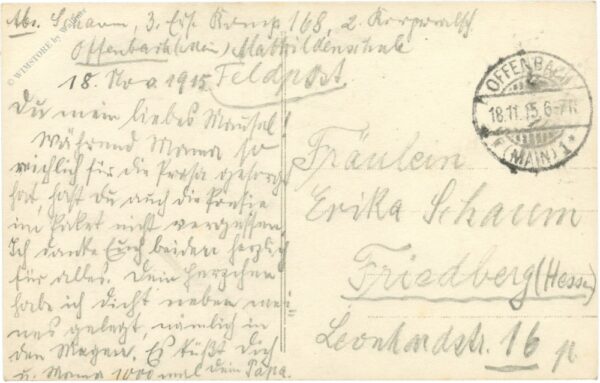 Abs. Schaum, 3. Ers. Komp. 168, 2. Korporalsch.
Offenbach (Main), Mathildenschule
18. Nov. 1915. Feldpost
Du mein liebes Mausel!
Während Mama so
reichlich für die Prosa gesorgt
hat, hast Du auch die Poesie
im Paket nicht vergessen.
Ich danke Euch beiden herzlich
für alles. Dein Herzchen
habe ich dicht neben mei-
nes gelegt, nämlich in
den Magen. Es küßt Dich
u. Mama 1000 mal Dein Papa.
OFFENBACH
18.11.15. 6-7N
(MAIN) 1 *
Fräulein
Erika Schaum
Friedberg (Hessen)
Leonhardstr. 16 p
© WIMSTORE by